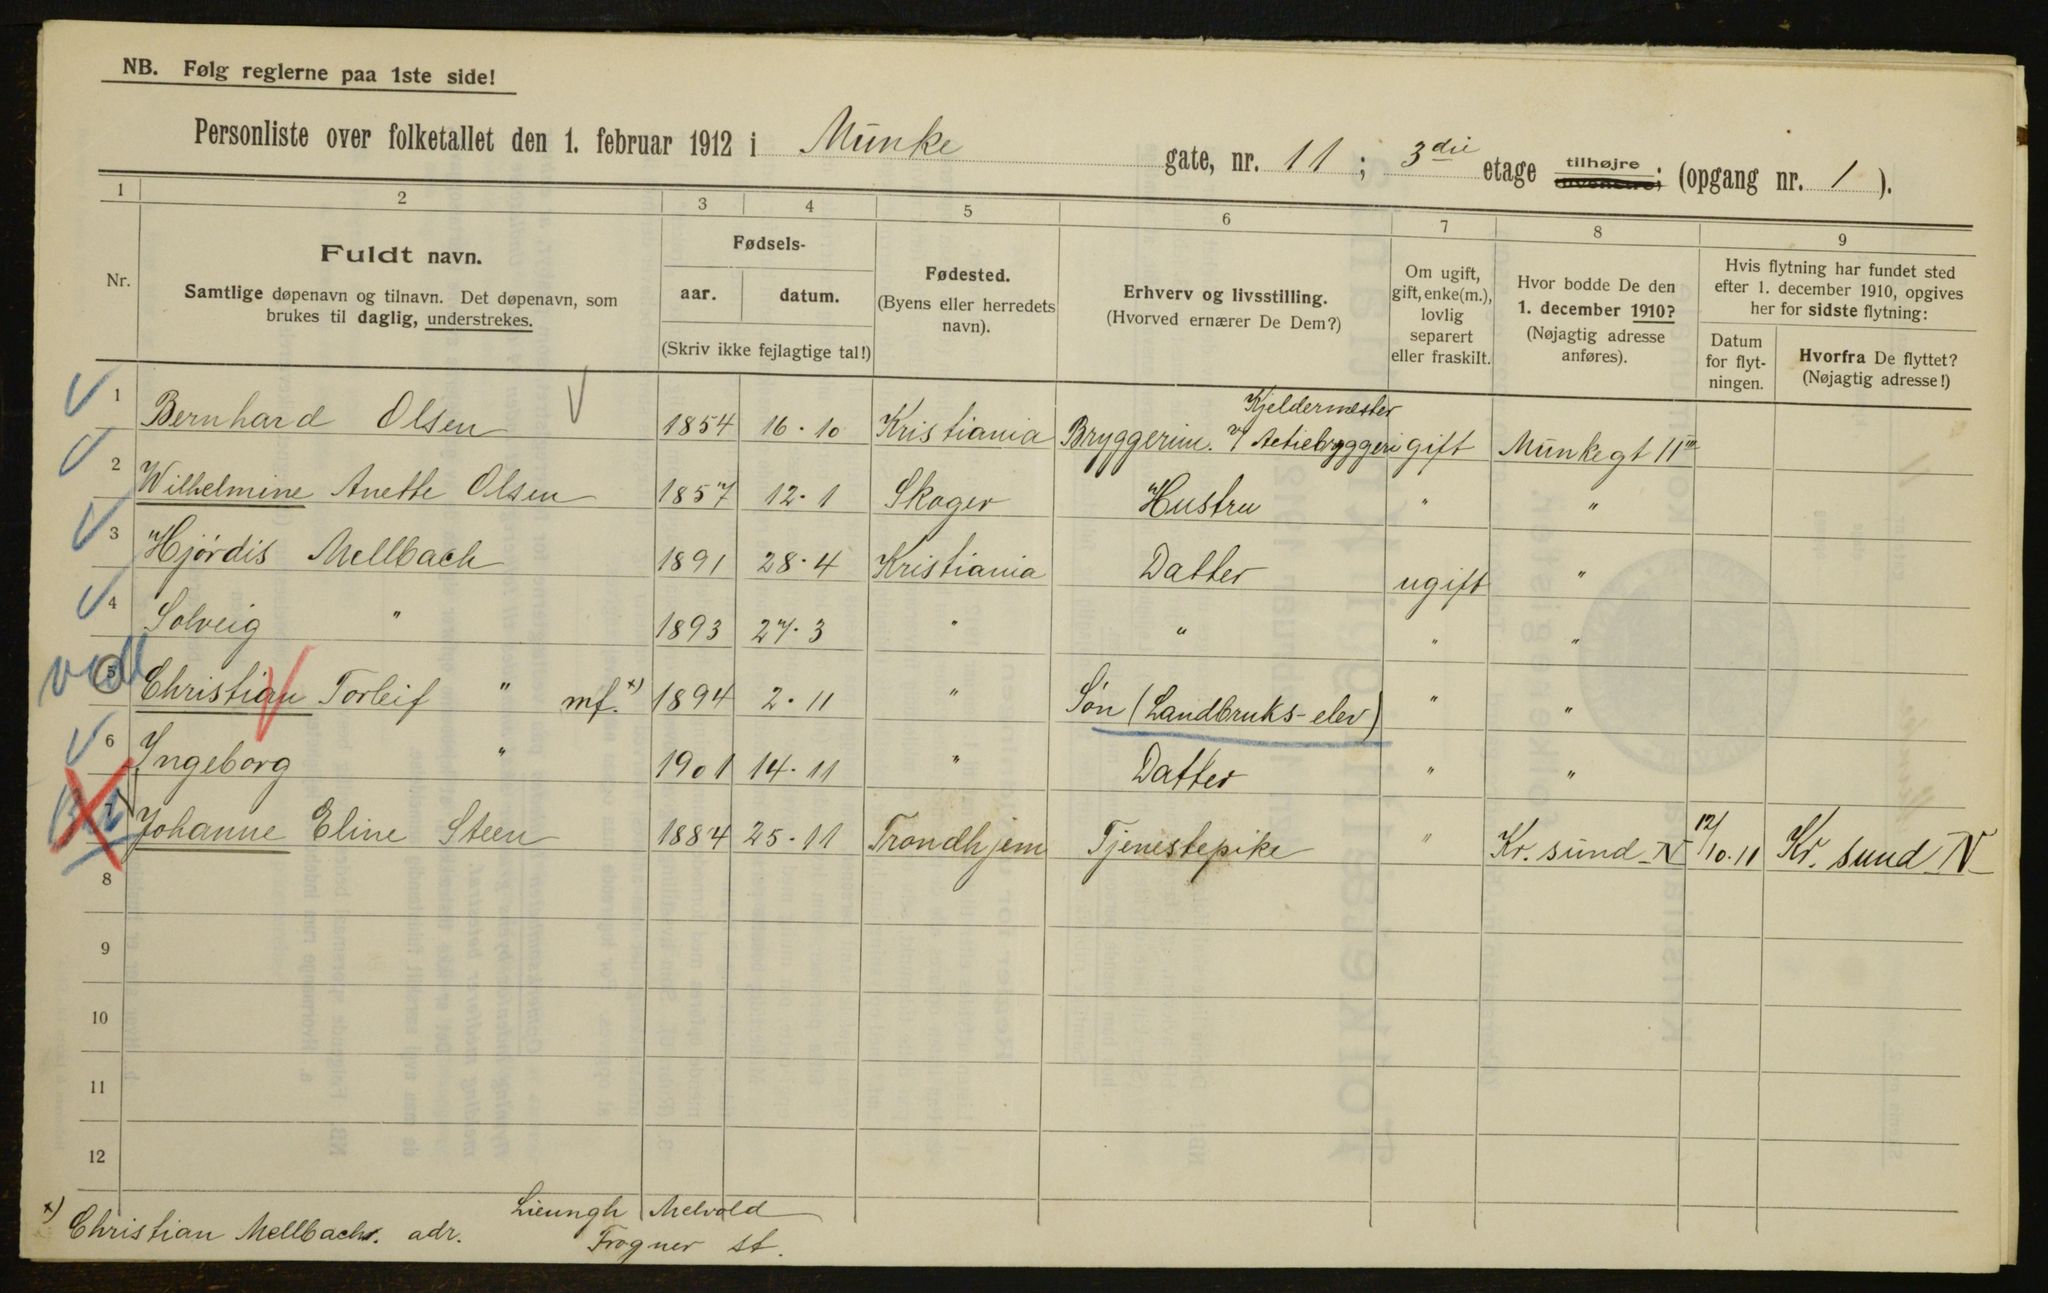 NB. Følg reglerne paa 1ste side!
Personliste over folketallet den 1. februar 1912 i Munke gate, nr. 11; 3die etage tilhøjre; (opgang nr. 1).
1 2 3 4 5 6 7 8 9
Nr.
Fuldt navn.
Samtlige døpenavn og tilnavn. Det døpenavn, som
brukes til daglig, understrekes.
Fødsels-
aar. datum.
(Skriv ikke fejlagtige tal!)
Fødested.
(Byens eller herredets
navn).
Erhverv og livsstilling.
(Hvorved ernærer De Dem?)
Om ugift,
gift, enke(m.),
lovlig
separert
eller fraskilt.
Hvor bodde De den
1. december 1910?
(Nøjagtig adresse
anføres).
Hvis flytning har fundet sted
efter 1. december 1910, opgives
her for sidste flytning:
Datum
for flyt-
ningen.
Hvorfra De flyttet?
(Nøjagtig adresse!)
Kjeldermester
1 Bernhard Olsen 1854 16.10 Kristiania Bryggerim. v/ Actiebryggeri gift Munkegt 11 III
2 Wilhelmine Anette Olsen 1857 12.1 Skoger Hustru " "
3 Hjördis Mellbach 1891 28.4 Kristiania Datter ugift "
4 Solveig " 1893 27.3 " " " "
5 Christian Torleif " mf. x) 1894 2.11 " Søn (Landbruks-elev) " "
6 Ingeborg " 1901 14.11 " Datter " "
7 Johanne Eline Steen 1884 25.11 Trondhjem Tjenestepike " Kr. sund N 12/10.11 Kr. sund N
8
9
10
11
12
x) Christian Mellbach. adr. Lieungh Melvold
Frogner st.